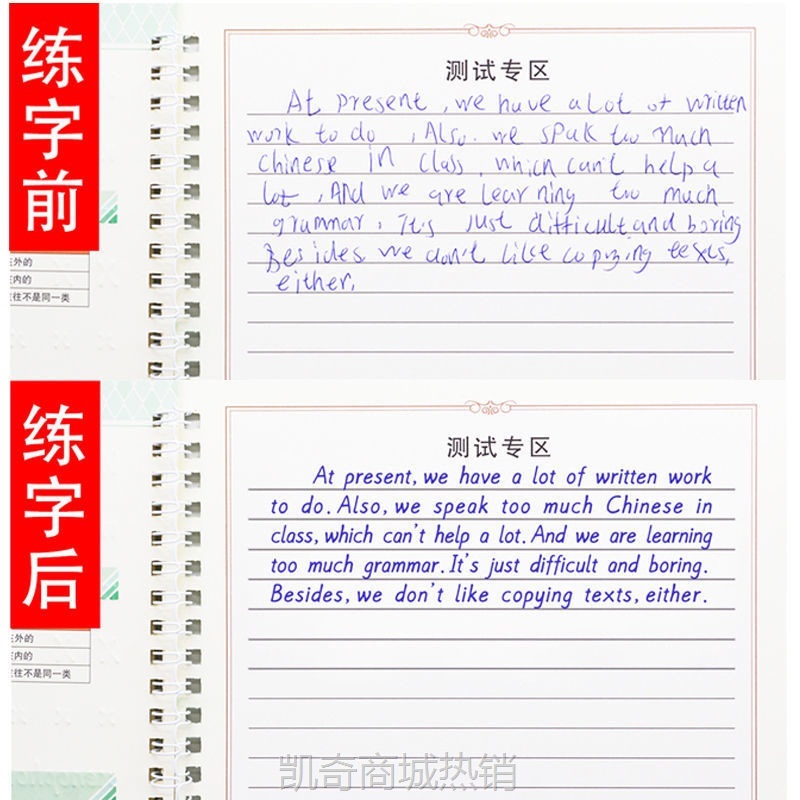 练字前
测试专区
At present, we have a lot of written
work to do , Also. we speak too much
chinese in class, which can't help a
lot , And we are learning too much
grammar, It's just difficult and boring
Besides we don't like copying texts,
either,
在外的
在内的
往往不是同一类
练字后
测试专区
At present, we have a lot of written work
to do. Also, we speak too much Chinese in
class, which can't help a lot. And we are learning
too much grammar. It's just difficult and boring.
Besides, we don't like copying texts, either.
在外的
在内的
往往不是同一类
凯奇商城热销